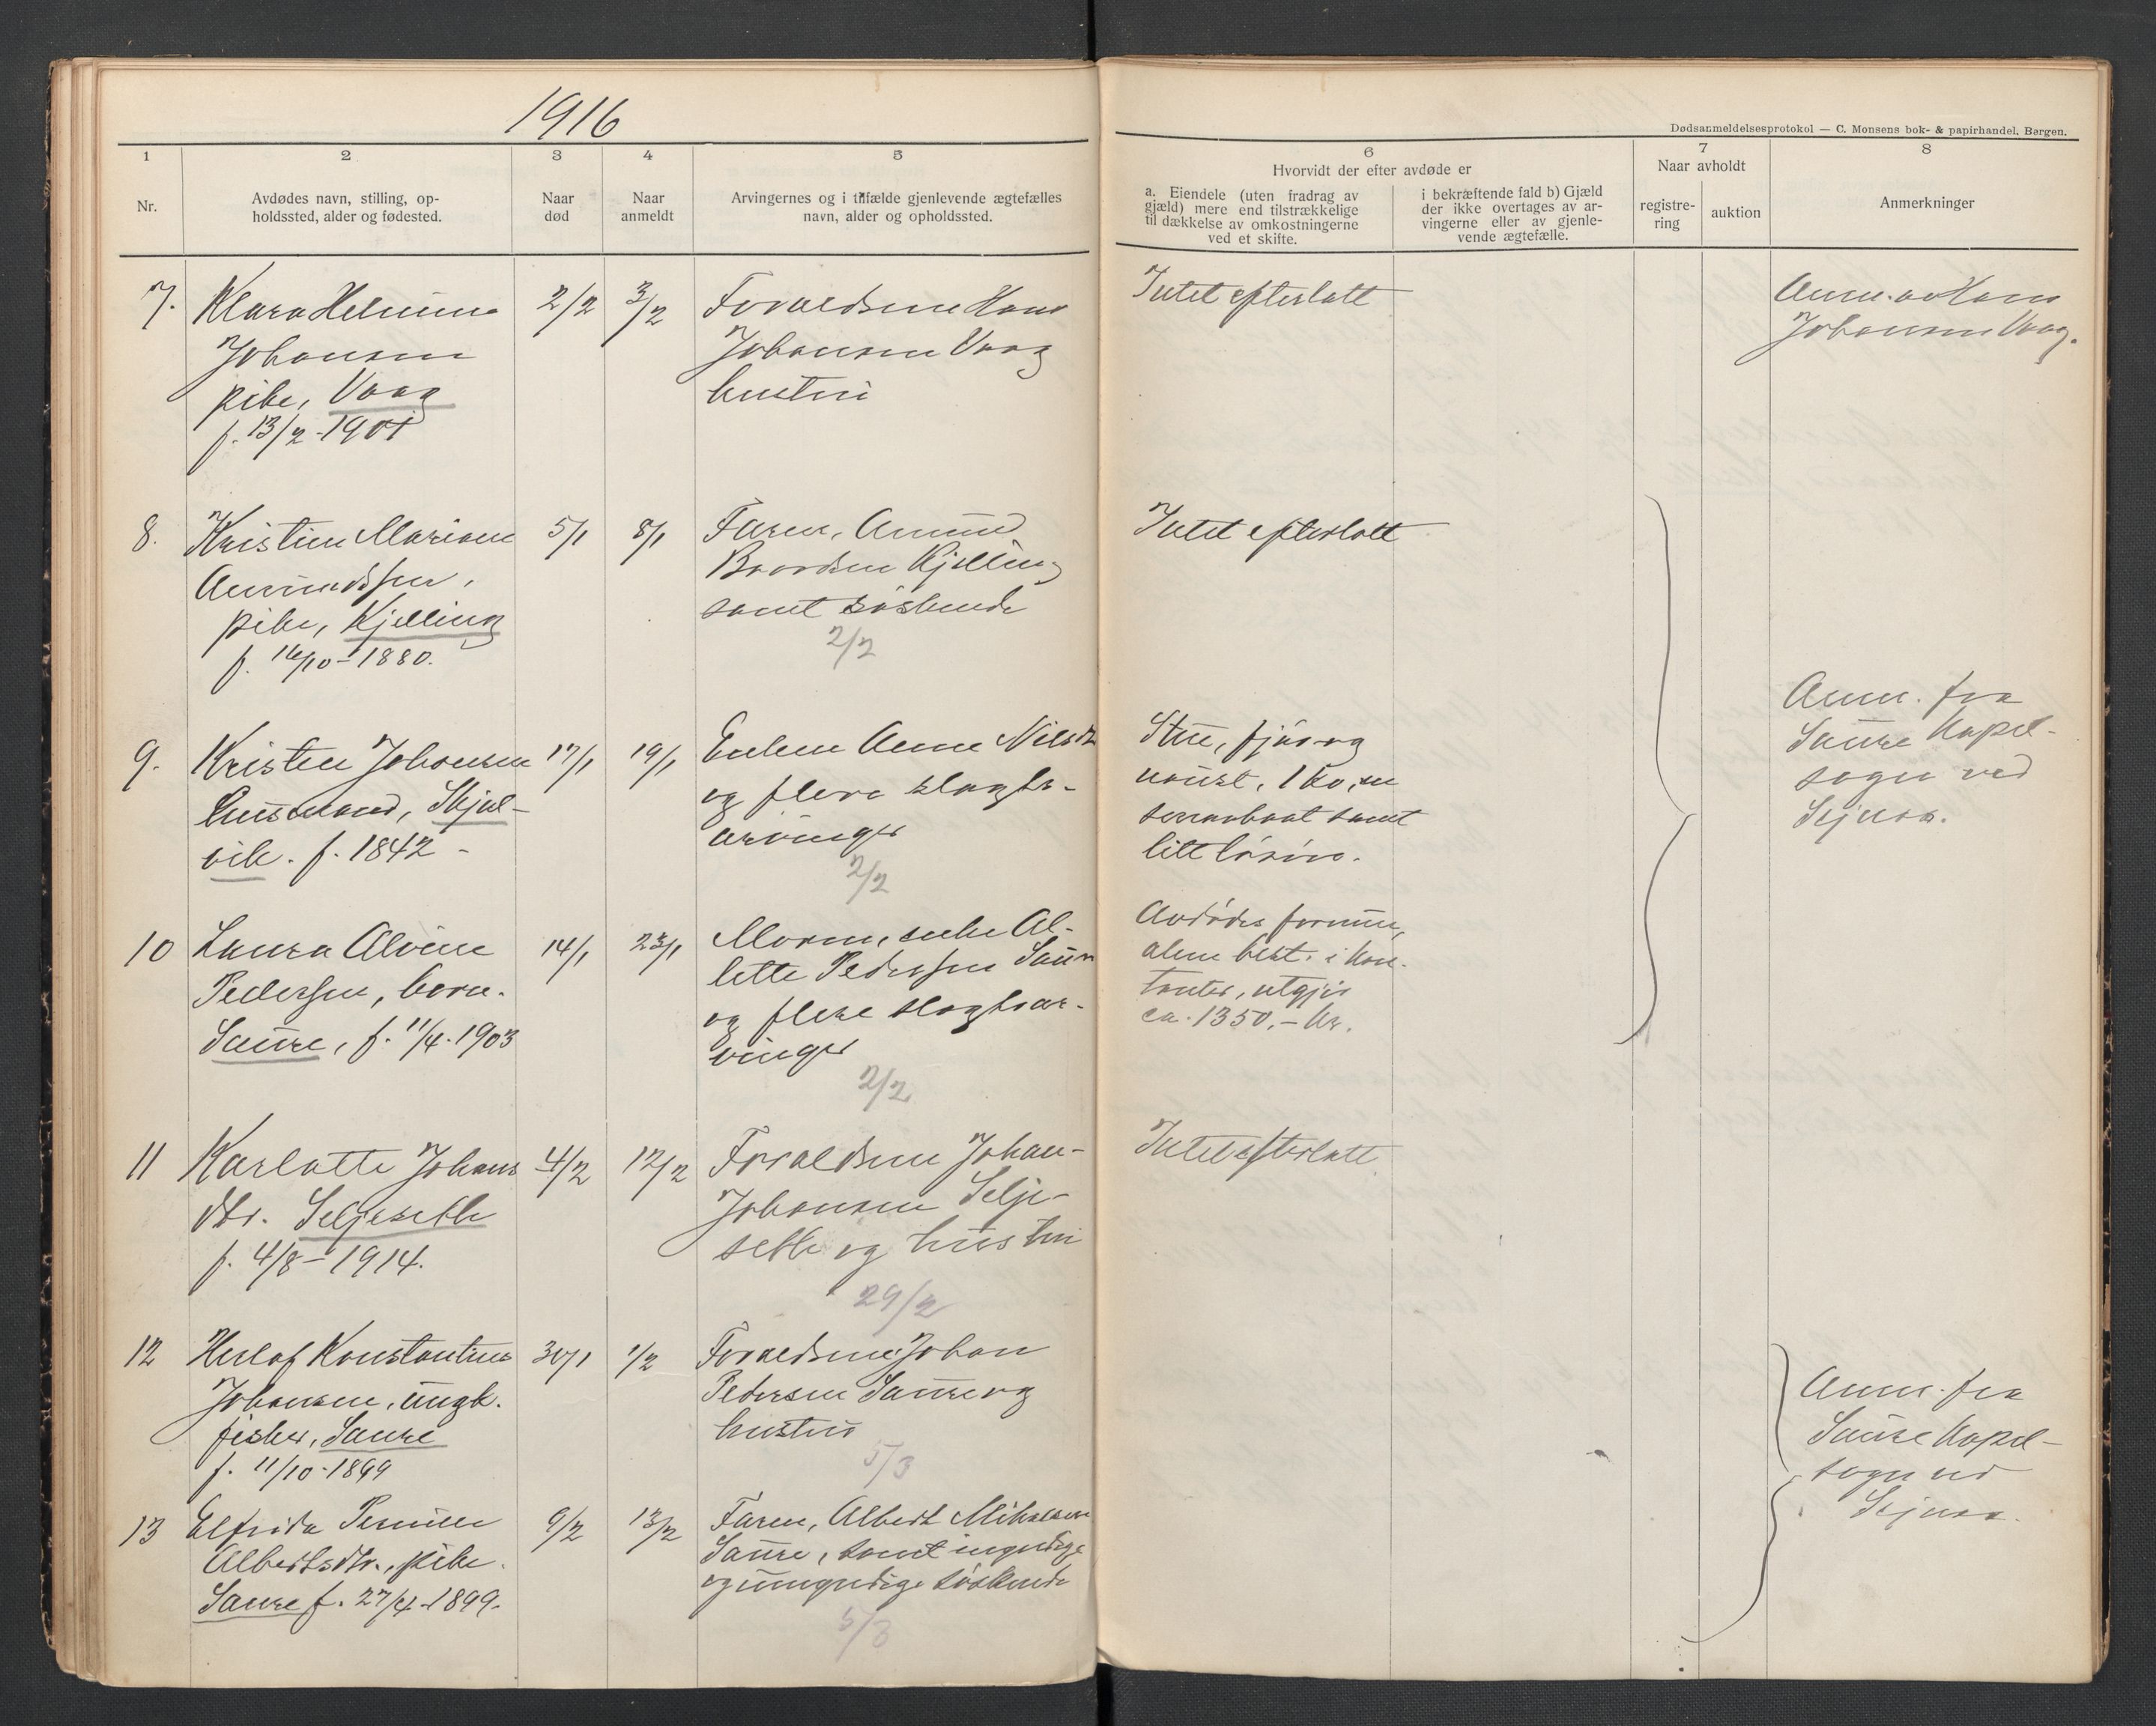 1916
Dødsanmeldelsesprotokol — C. Monsens bok- & papirhandel, Bergen.
1
2
3
4
5
6
7
8
Nr.
Avdødes navn, stilling, op-
holdssted, alder og fødested.
Naar
død
Naar
anmeldt
Arvingernes og i tilfælde gjenlevende ægtefælles
navn, alder og opholdssted.
Hvorvidt der efter avdøde er
a. Eiendele (uten fradrag av
gjæld) mere end tilstrækkelige
til dækkelse av omkostningerne
ved et skifte.
i bekræftende fald b) Gjæld
der ikke overtages av ar-
vingerne eller av gjenle-
vende ægtefælle.
Naar avholdt
registre-
ring
auktion
Anmerkninger
7.
Klara Helmine
Johansen
pike, Vaag
f. 13/2-1901
2/2
3/2
Forældrene Hans
Johansen Vaag
hustru
Intet efterlatt
Anm. av Hans
Johansen Vaag.
8.
Kristine Mariane
Amundsen,
pike, Kjelling
f. 16/10-1880.
5/1
8/1
Faren, Amund
Baardsen Kjelling
samt søskende
2/2
Intet efterlatt
9.
Kristen Johansen
husmand, Skjel-
vik. f. 1842 -
17/1
19/1
Enken Anne Nilsd
og flere slagts-
arvinger
2/2
Stue, fjøs og
naust, 1 ko, en
baat samt
litt løsøre.
Anm. fra
Saura Kapel-
sogn ved
10
Laura Alvine
Pedersen, barn.
Saura, f. 11/4-1903
14/1
23/1
Moren, enke Al-
lette Pedersen Saura
og flere slagtsar-
vinger
2/2
Avdødes formue,
alene best. i kon-
tanter, utgjør
ca. 1350,- kr.
11
Karlotte Johans
dtr. Seljeseth
f. 4/8-1914.
4/2
12/2
Forældrene Johan
Johansen Selje-
seth og hustru
29/2
Intet efterlatt
12
Herlof Konstantin
Johansen, ungk.
fisker, Saura
f. 11/10-1899
30/1
1/2
Forældrene Johan
Pedersen Saura og
hustru
5/3
Anm. fra
Saura Kapel-
sogn ved
13
Elfrida Pernille
Albertsdtr., pike
Saura f. 27/4-1899.
9/2
13/2
Faren, Albert Mikalsen
Saura, samt myndige
og umyndige søskende
5/3